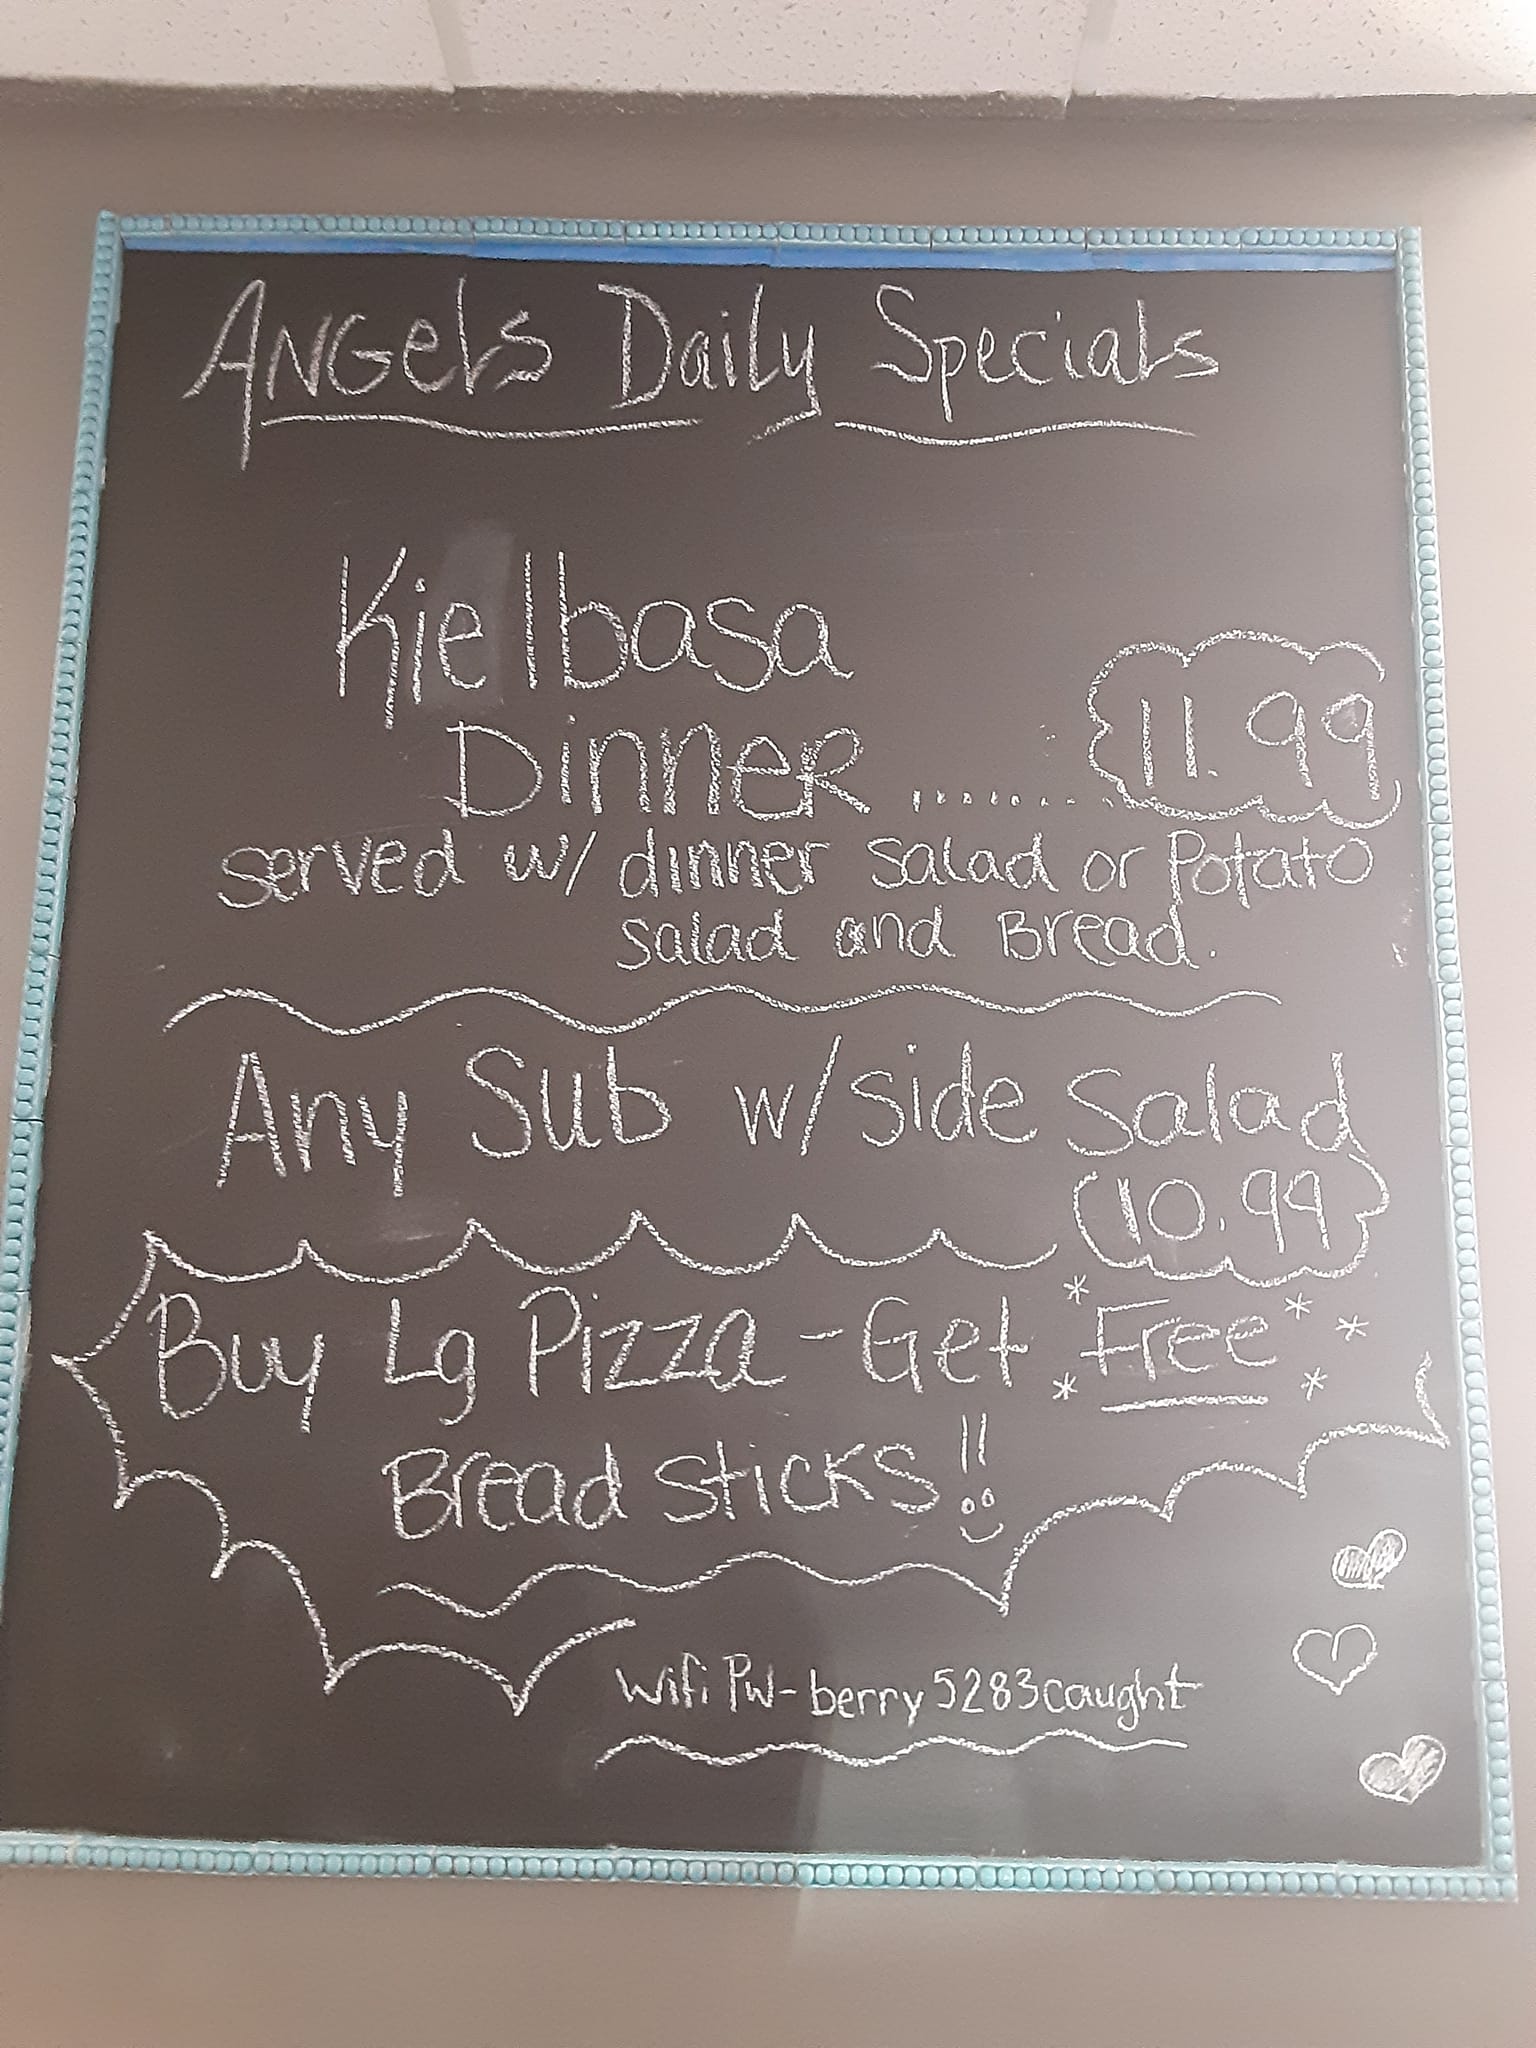 ANGels Daily Specials
Kielbasa
DinneR ........ 11.99
served w/ dinner salad or Potato
salad and Bread.
Any Sub w/side Salad
10.99
Buy Lg Pizza - Get *Free* * * *
Bread sticks!!
wifi PW- berry5283caught